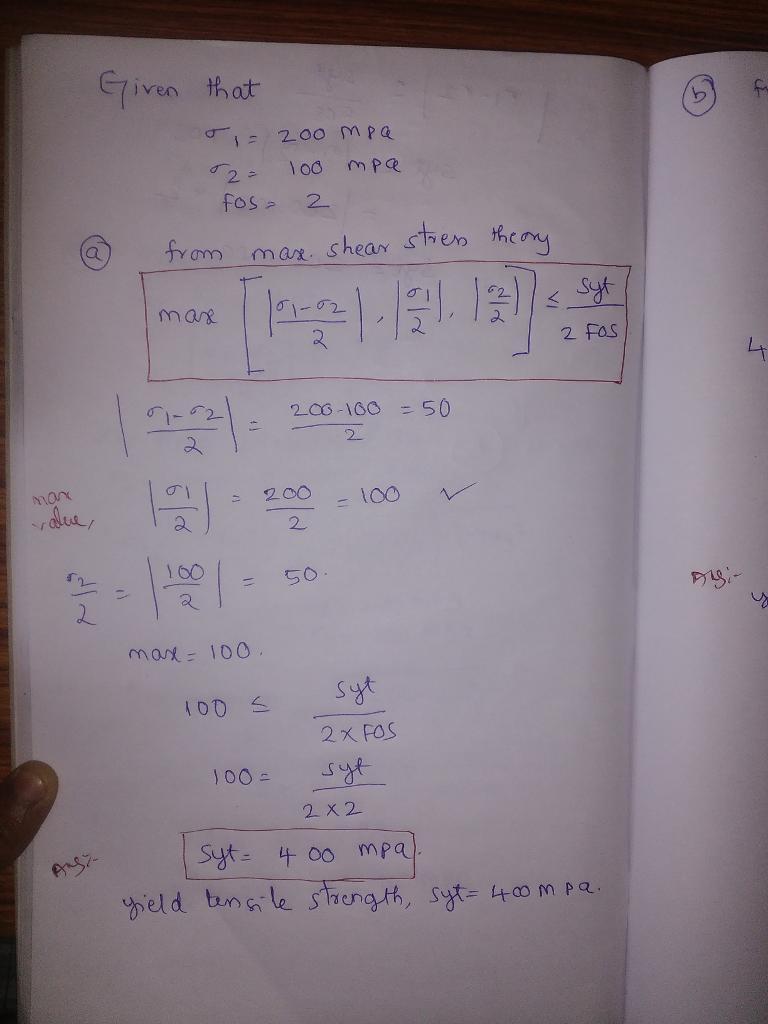 Given that
σ1 = 200 mpa
σ2 = 100 mpa
FOS = 2
ⓐ from max. shear stress theory
max [ |σ1-σ2/2|, |σ1/2|, |σ2/2| ] ≤ Syt/2 FOS
|σ1-σ2/2| = 200-100/2 = 50
max value, |σ1/2| = 200/2 = 100 ✓
σ2/2 = |100/2| = 50.
max = 100.
100 ≤ Syt/2×FOS
100 = Syt/2×2
Ans:- Syt = 400 mpa.
yield tensile strength, Syt = 400 mpa.
ⓑ
4
Ans:-